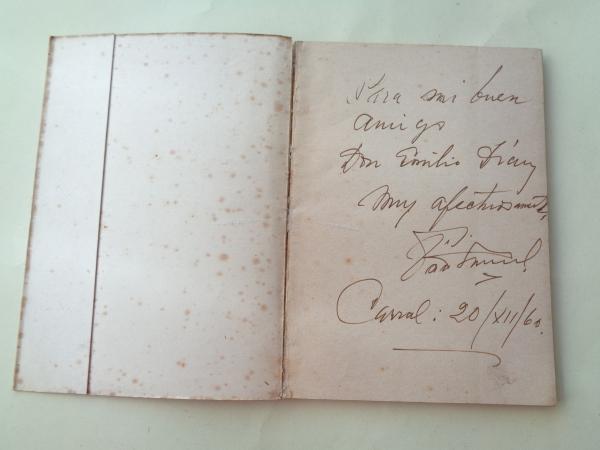 Para mi buen
amigo
Don Emilio
Muy afectuosamente,
Carral: 20/XII/60.